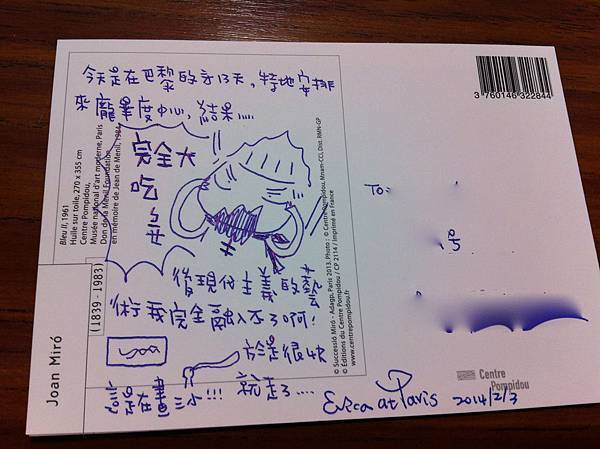 今天是在巴黎的方13天，特地安排
來龐畢度中心，結果.....
完全大
吃
後現代主義的藝
術我完全融入不了啊!
於是很快
這是在畫三小!!!
就走了....
Erica at Paris 2014/2/3
To:
號
3 760146 322844
Centre
Pompidou
Joan Miró
(1839 - 1983)
Bleu II, 1961
Huile sur toile, 270 x 355 cm
Centre Pompidou,
Musée national d'art moderne, Paris
Don de la Menil Foundation
en mémoire de Jean de Menil, 1984
© Successió Miró - Adagp, Paris 2013. Photo : © Centre Pompidou, Mnam-CCI, Dist. RMN-GP
© Éditions du Centre Pompidou / CP 2114 / Imprimé en France
www.centrepompidou.fr